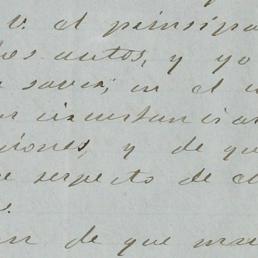 v. al principa
hos autos, y yo
saver, en el
circunstancias
ciones, y de que
respecto de
de que